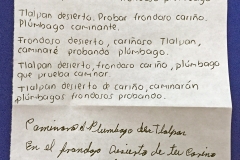 Tlalpan desierto. Probar frondoso cariño.
Plúmbago caminante.
Frondoso desierto, cariñoso Tlalpan,
caminaré probando plúmbago.
Tlalpan desierto, frondoso cariño, plúmbago
que prueba caminar.
Tlalpan desierto de cariño, caminarán
plúmbagos frondosos probando.
Plumbago Tlalpan
En el frondoso Desierto de tu Cariño